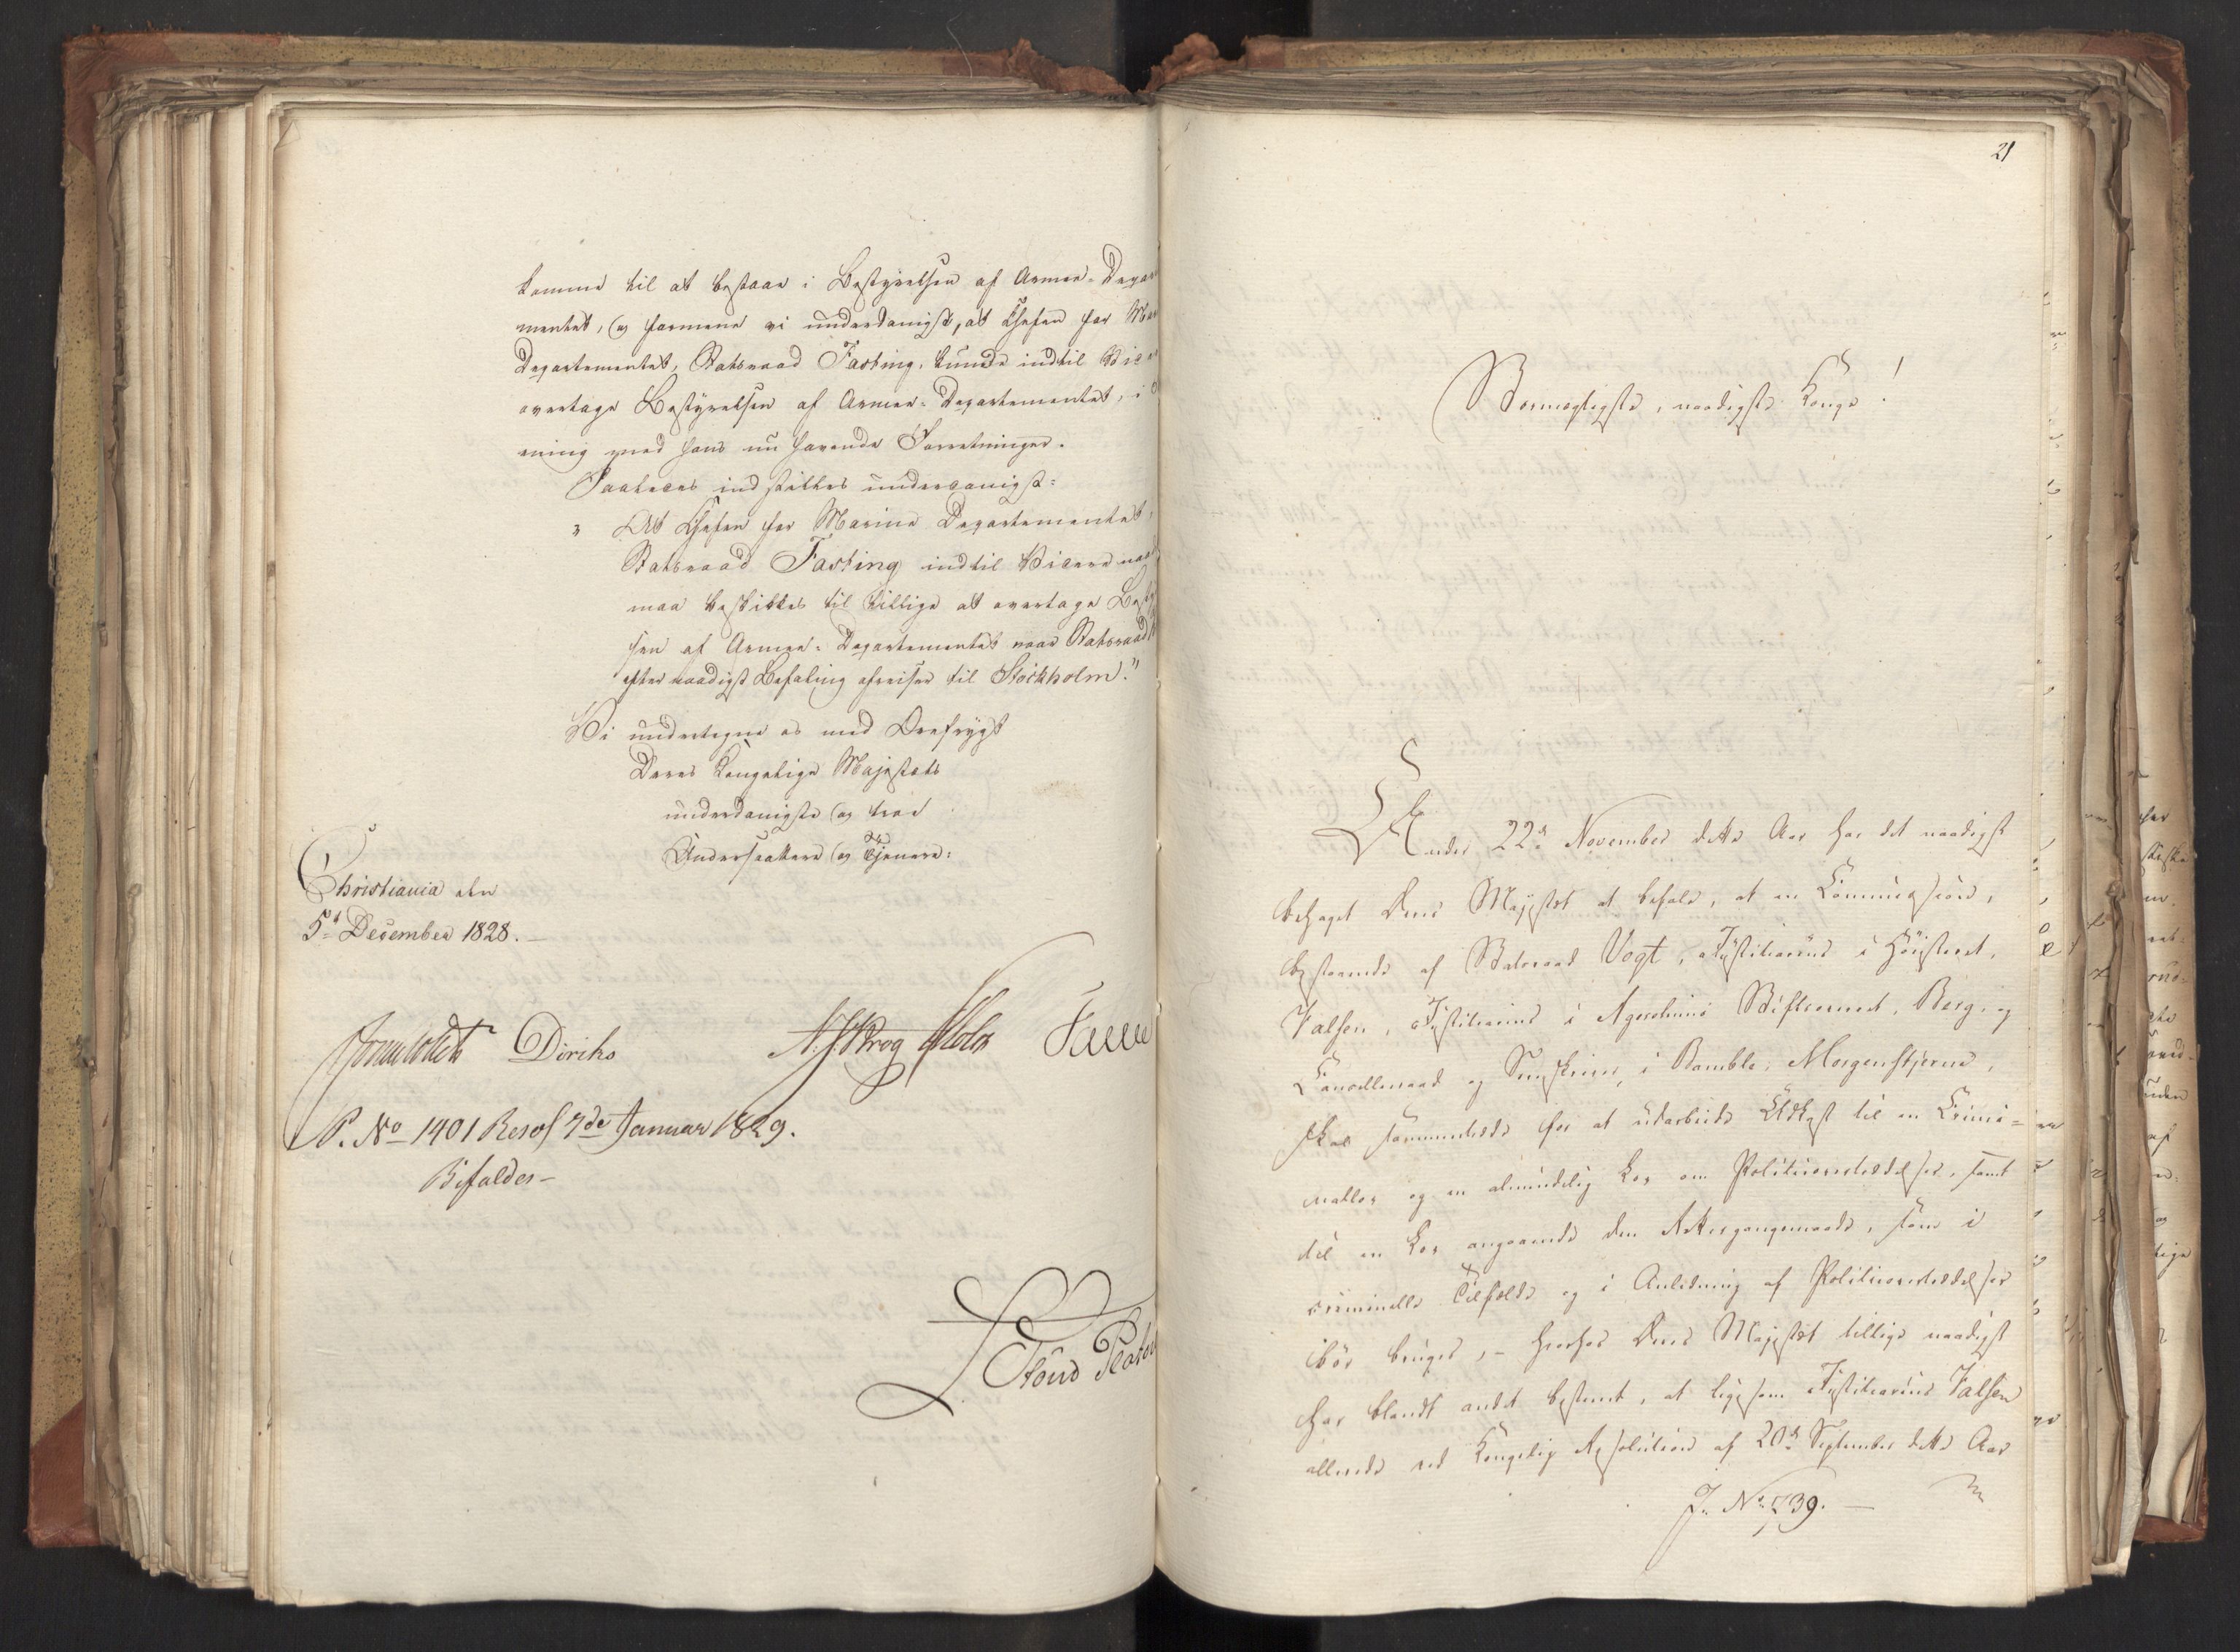 komme til at bestaae i Bestyrelsen af Armee-Depar
mentet, og formene vi underdanigst, at Chefen for Ma
Departementet, Statsraad Fasting, kunde indtil Vi
overtage Bestyrelsen af Armee-Departementet, i
ening med hans nu havende Forretninger.
Saaledes indstilles underdanigst:
„ At Chefen for Marine Departementet,
Statsraad Fasting indtil Videre naa
maa beskikkes til tillige at overtage Besty
sen af Armee-Departementet naar Statsraad
efter naadigst Befaling afreiser til Stockholm."
Vi undertegne os med Ærefrygt
Deres Kongelige Majestæts
underdanigste og troe
Undersaattere og Tjenere:
Christiania den
5t December 1828.
Diriks
Krog Holst
P. No 1401 Resol 7de Januar 1829.
Bifaldes
21
Stormægtigste, naadigste Konge!
Under 22de November dette Aar har det naadigst
behaget Deres Majestæt at befale, at en Commission,
bestaaende af Statsraad Vogt, Justitiarius i Høiesteret,
Falsen, Justitiarius i Agershuus Stiftsoverret, Berg, og
Cancelleraad og Sorenskriver i Bamble, Morgenstjerne,
skal sammentræde for at udarbeide Udkast til en Crimi=
nallov og en almindelig Lov om Politieovertrædelser, samt
til en Lov angaaende den Rettergangsmaade, som i
criminelle Tilfælde og i Anledning af Politieovertrædelser
bør bruges, – hvorhos Deres Majestæt tillige naadigst
har blandt andet bestemt, at ligesom Justitiarius Falsen
allerede ved Kongelig Resolution af 20de September dette Aar
J. No 739.